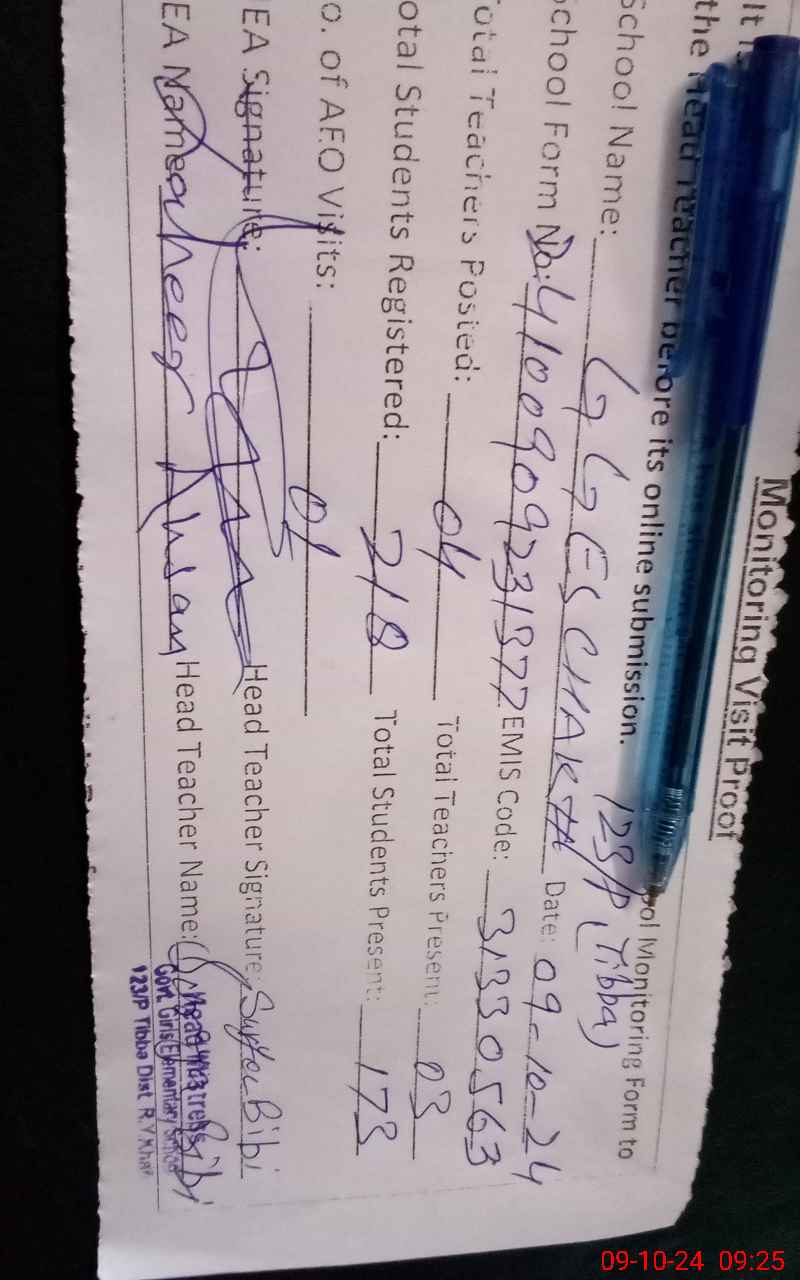 Monitoring Visit Proof
It is
ool Monitoring Form to
the Head Teacher before its online submission.
School Name: GGES CHAK # 123/P (Tibba)
Date: 09-10-24
School Form No: 4100909231377 EMIS Code: 31330563
Total Teachers Posted: 04 Total Teachers Present: 03
otal Students Registered: 218 Total Students Present: 173
o. of AEO Visits: 01
EA Signature: Head Teacher Signature: Bibi
EA Name: Ahsan Head Teacher Name: Bibi
Head Mistress
Govt. Girls Elementary School
123/P Tibba Dist. R.Y.Khan
09-10-24 09:25